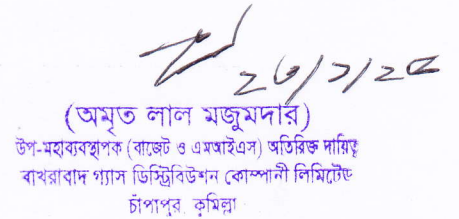 ২৬/১/২৫
(অমৃত লাল মজুমদার)
উপ-মহাব্যবস্থাপক (বাজেট ও এমআইএস) অতিরিক্ত দায়িত্ব
বাখরাবাদ গ্যাস ডিস্ট্রিবিউশন কোম্পানী লিমিটেড
চাঁপাপুর, কুমিল্লা